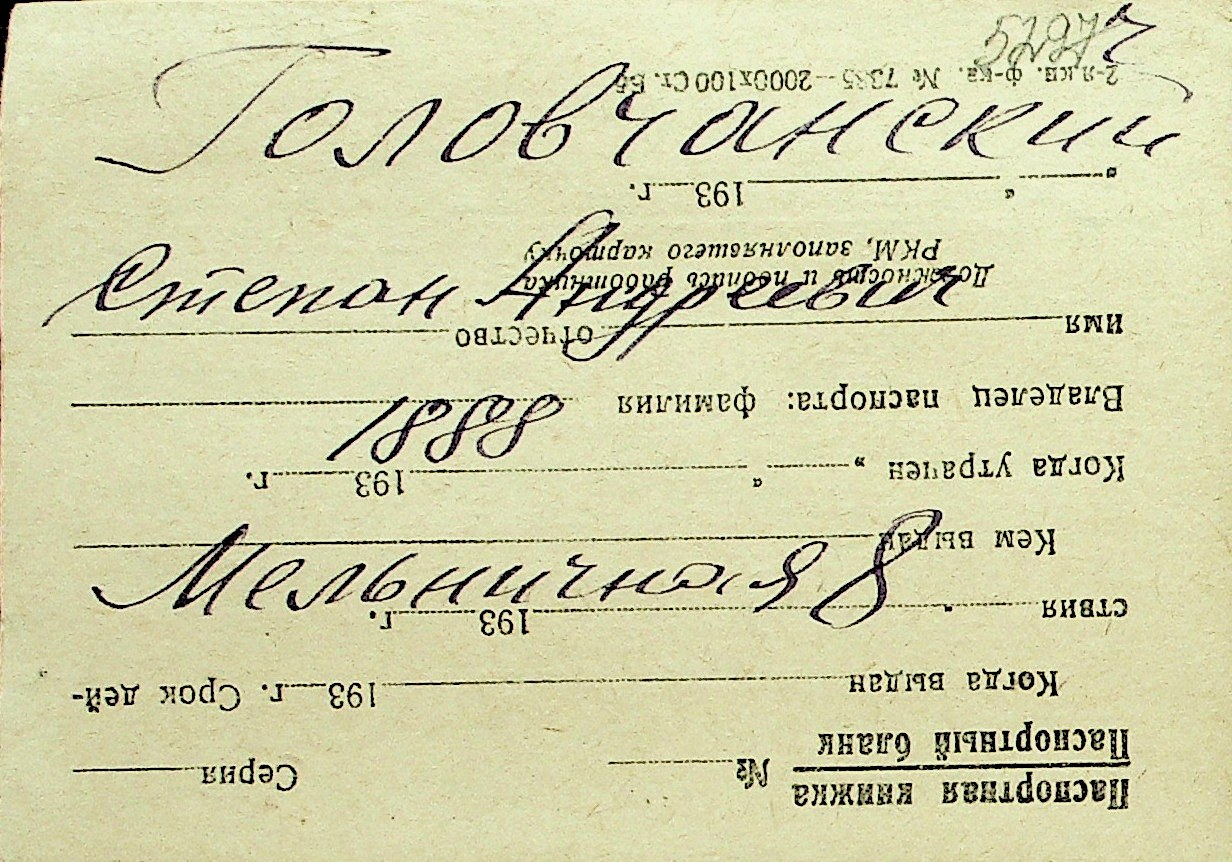 5297
Головчанский
Степан Андреевич
1888
Мельничная 8
Паспортная книжка
Паспортный бланк
№ Серия
Когда выдан 193 г. Срок дей-
ствия " 193 г.
Кем выдан
Когда утрачен „ " 193 г.
Владелец паспорта: фамилия
имя отчество
Должность и подпись работника
РКМ, заполнявшего карточку
" " 193 г.
2-я кн. ф-ка. № 7385—2000х100 Ст.